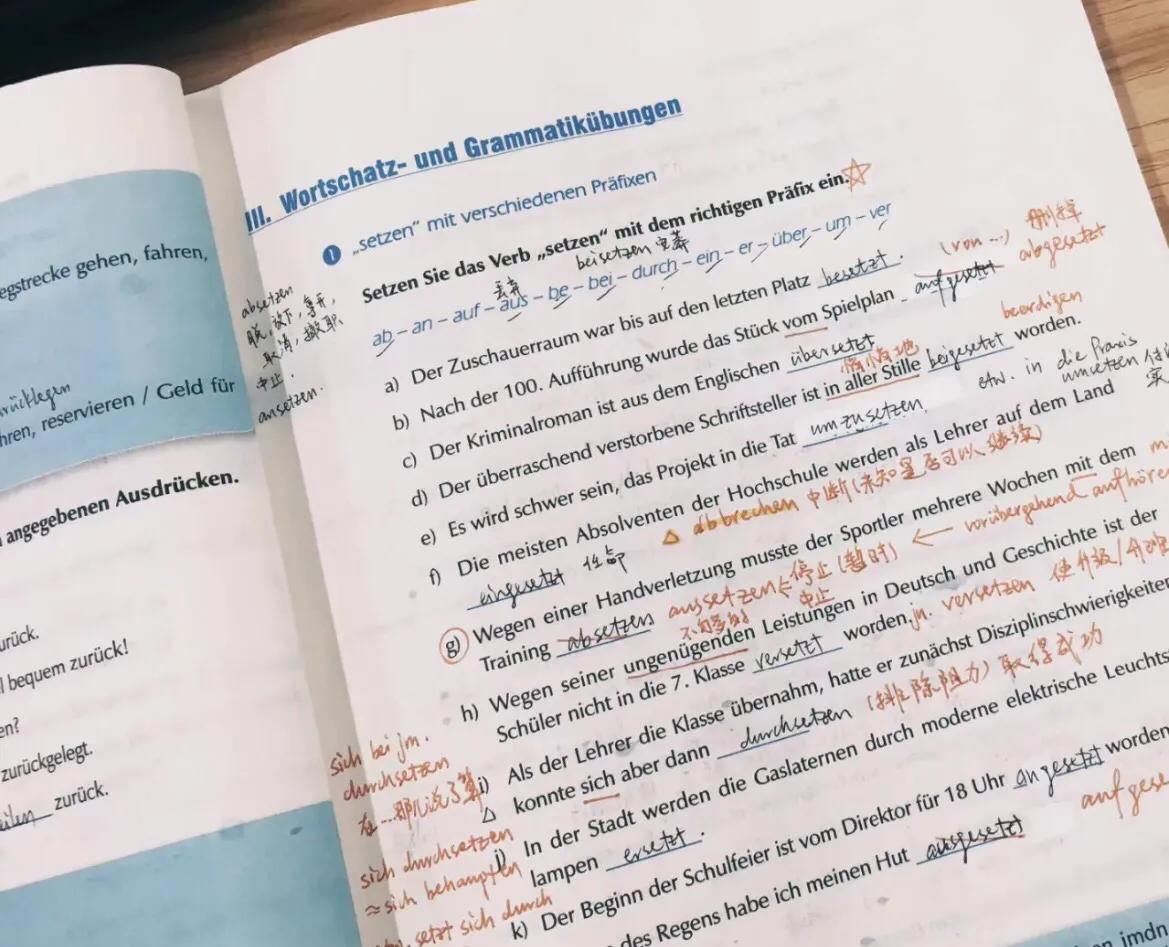 egstrecke gehen, fahren,
rücklegen
hren, reservieren / Geld für
angegebenen Ausdrücken.
urück.
l bequem zurück!
en?
zurückgelegt.
eilen zurück.
III. Wortschatz- und Grammatikübungen
1 „setzen“ mit verschiedenen Präfixen
Setzen Sie das Verb „setzen“ mit dem richtigen Präfix ein.
beisetzen
ab – an – auf – aus – be – bei – durch – ein – er – über – um – ver
absetzen
脱, 放下,
取消, 撤职
中止.
ansetzen.
a) Der Zuschauerraum war bis auf den letzten Platz besetzt.
(von ...) 删掉
b) Nach der 100. Aufführung wurde das Stück vom Spielplan aufgesetzt abgesetzt
c) Der Kriminalroman ist aus dem Englischen übersetzt
beerdigen
d) Der überraschend verstorbene Schriftsteller ist in aller Stille beigesetzt worden.
etw. in die Praxis
umsetzen
e) Es wird schwer sein, das Projekt in die Tat umzusetzen.
f) Die meisten Absolventen der Hochschule werden als Lehrer auf dem Land
eingesetzt
△ abbrechen 中断(未知是否可以继续)
g) Wegen einer Handverletzung musste der Sportler mehrere Wochen mit dem
Training absetzen aussetzen 停止(暂时) ← vorübergehend aufhöre
中止
h) Wegen seiner ungenügenden Leistungen in Deutsch und Geschichte ist der
Schüler nicht in die 7. Klasse versetzt worden. jn. versetzen 使升级/
i) Als der Lehrer die Klasse übernahm, hatte er zunächst Disziplinschwierigkeiten
konnte sich aber dann durchsetzen (排除阻力) 取得成功
sich bei jm.
durchsetzen
在...那儿说了算
j) In der Stadt werden die Gaslaternen durch moderne elektrische Leuchts
lampen ersetzt.
sich durchsetzen
≈ sich behaupten
setzt sich durch
k) Der Beginn der Schulfeier ist vom Direktor für 18 Uhr angesetzt worden
des Regens habe ich meinen Hut ausgesetzt aufgese
imdn